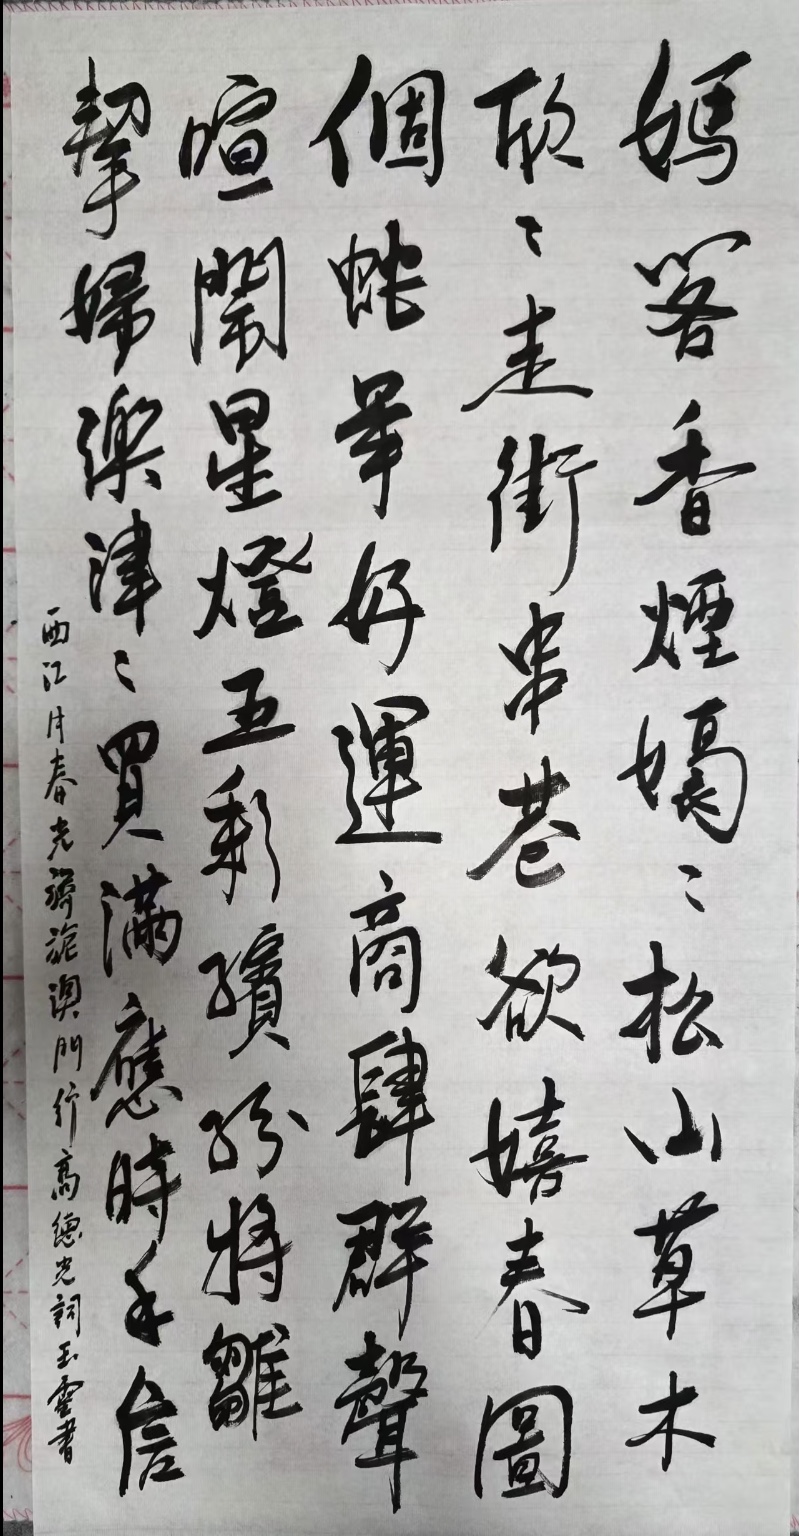 媽閣香煙嫋〻松山草木
欣〻走街串巷欲嬉春圖
個蛇年好運商肆群聲
喧鬧星燈五彩繽紛將雛
挈婦樂津〻買滿應時手信
西江月春光旖旎澳門行高德光詞玉雲書